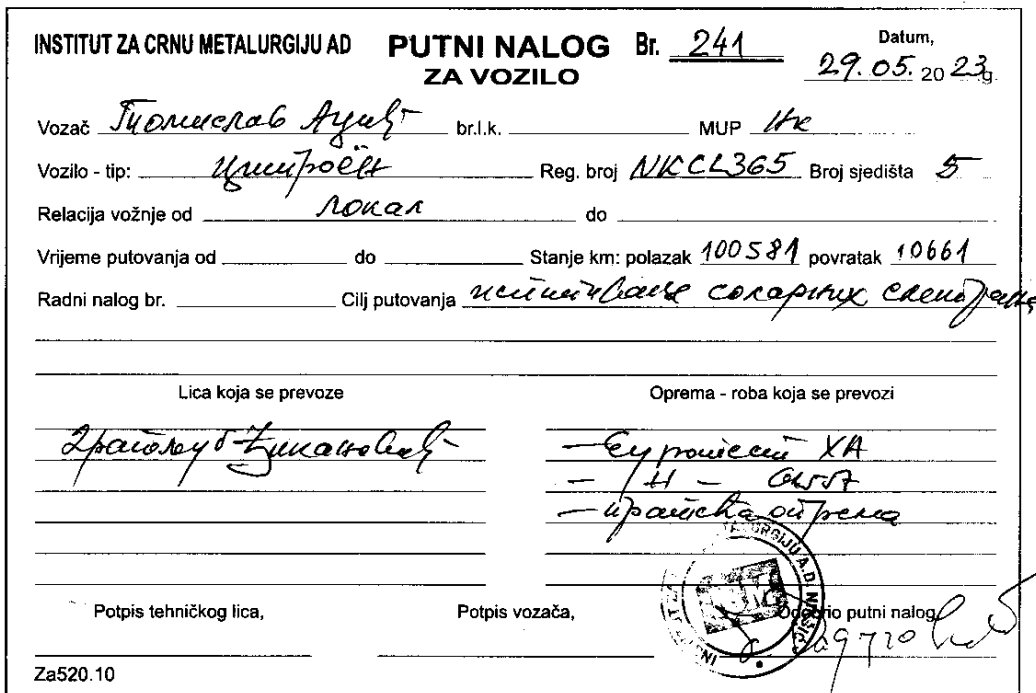 INSTITUT ZA CRNU METALURGIJU AD PUTNI NALOG Br. 241 Datum,
ZA VOZILO 29. 05. 20 23 g
Vozač Томислав br.l.k. MUP Нк
Vozilo - tip: Цитроён Reg. broj NKCL365 Broj sjedišta 5
Relacija vožnje od локал do
Vrijeme putovanja od do Stanje km: polazak 100581 povratak 10661
Radni nalog br. Cilj putovanja испитивање соларних
Lica koja se prevoze Oprema - roba koja se prevozi
Драгољуб — Еуротест XA
— // —
— пратећа опрема
Potpis tehničkog lica, Potpis vozača, Odobrio putni nalog,
Za520.10